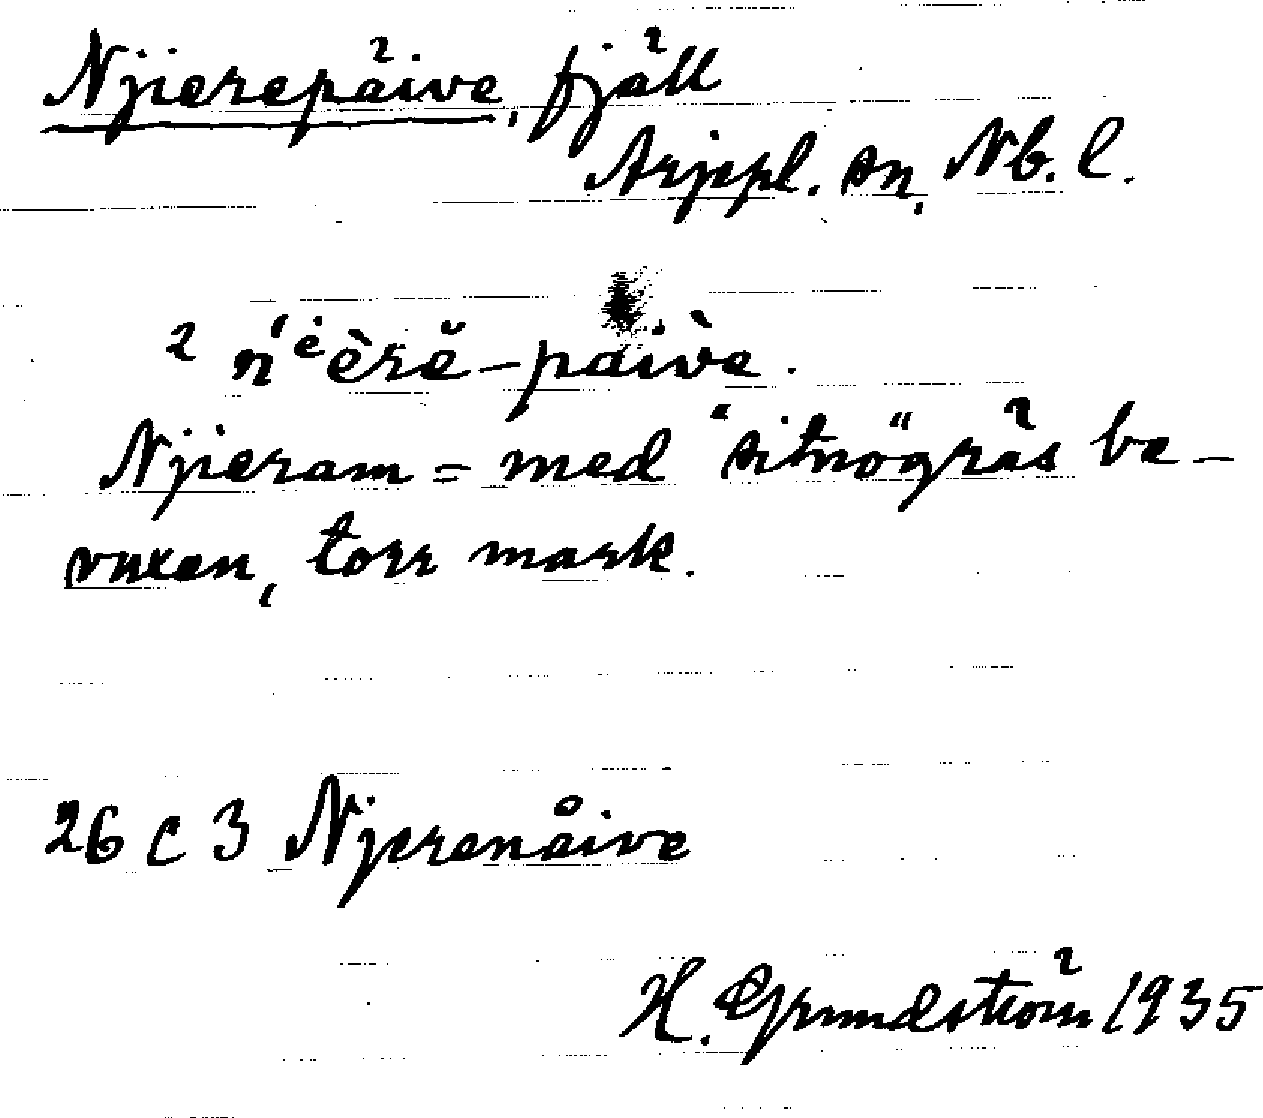 Njierepäive, fjäll
Arjepl. sn. Nb. l.
2 ń ͤèrĕ-paivè.
Njieram = med "sitnögräs be-
vuxen, torr mark.
26 C 3 Njerenåive
H. Grundström 1935